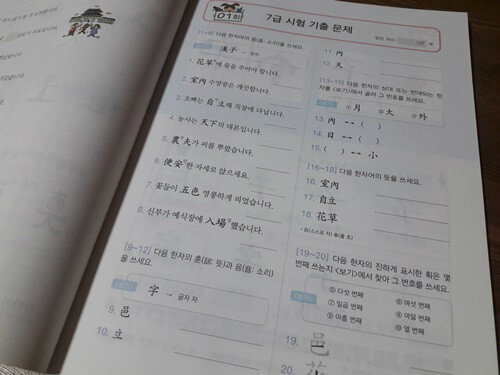 01회
7급 시험 기출 문제
[1~8] 다음 한자어의 음(音: 소리)을 쓰세요.
漢子 → 한자
1. 花草에 물을 주어야 합니다.
2. 室內 수영장은 깨끗합니다.
3. 오빠는 自立해 직장에 다닙니다.
4. 농사는 天下의 대본입니다.
5. 農夫가 씨를 뿌렸습니다.
6. 便安한 자세로 앉으세요.
7. 꽃들이 五色 영롱하게 피었습니다.
8. 신부가 예식장에 入場했습니다.
[9~12] 다음 한자의 훈(訓: 뜻)과 음(音: 소리)
을 쓰세요.
보기
字 → 글자 자
9. 邑
10. 立
11. 內
12. 天
[13~15] 다음 한자의 상대 또는 반대되는 한
자를 <보기>에서 골라 그 번호를 쓰세요.
①月 ②大 ③外
13. 內 ↔ ( )
14. 日 ↔ ( )
15. ( ) ↔ 小
[16~18] 다음 한자어의 뜻을 쓰세요.
16. 室內
17. 自立
18. 花草
[19~20] 다음 한자의 진하게 표시한 획은 몇
번째 쓰는지 <보기>에서 찾아 그 번호를 쓰세요.
보기
⑤ 다섯 번째 ⑥ 여섯 번째
⑦ 일곱 번째 ⑧ 여덟 번째
⑨ 아홉 번째 ⑩ 열 번째
19. 邑
20. 花